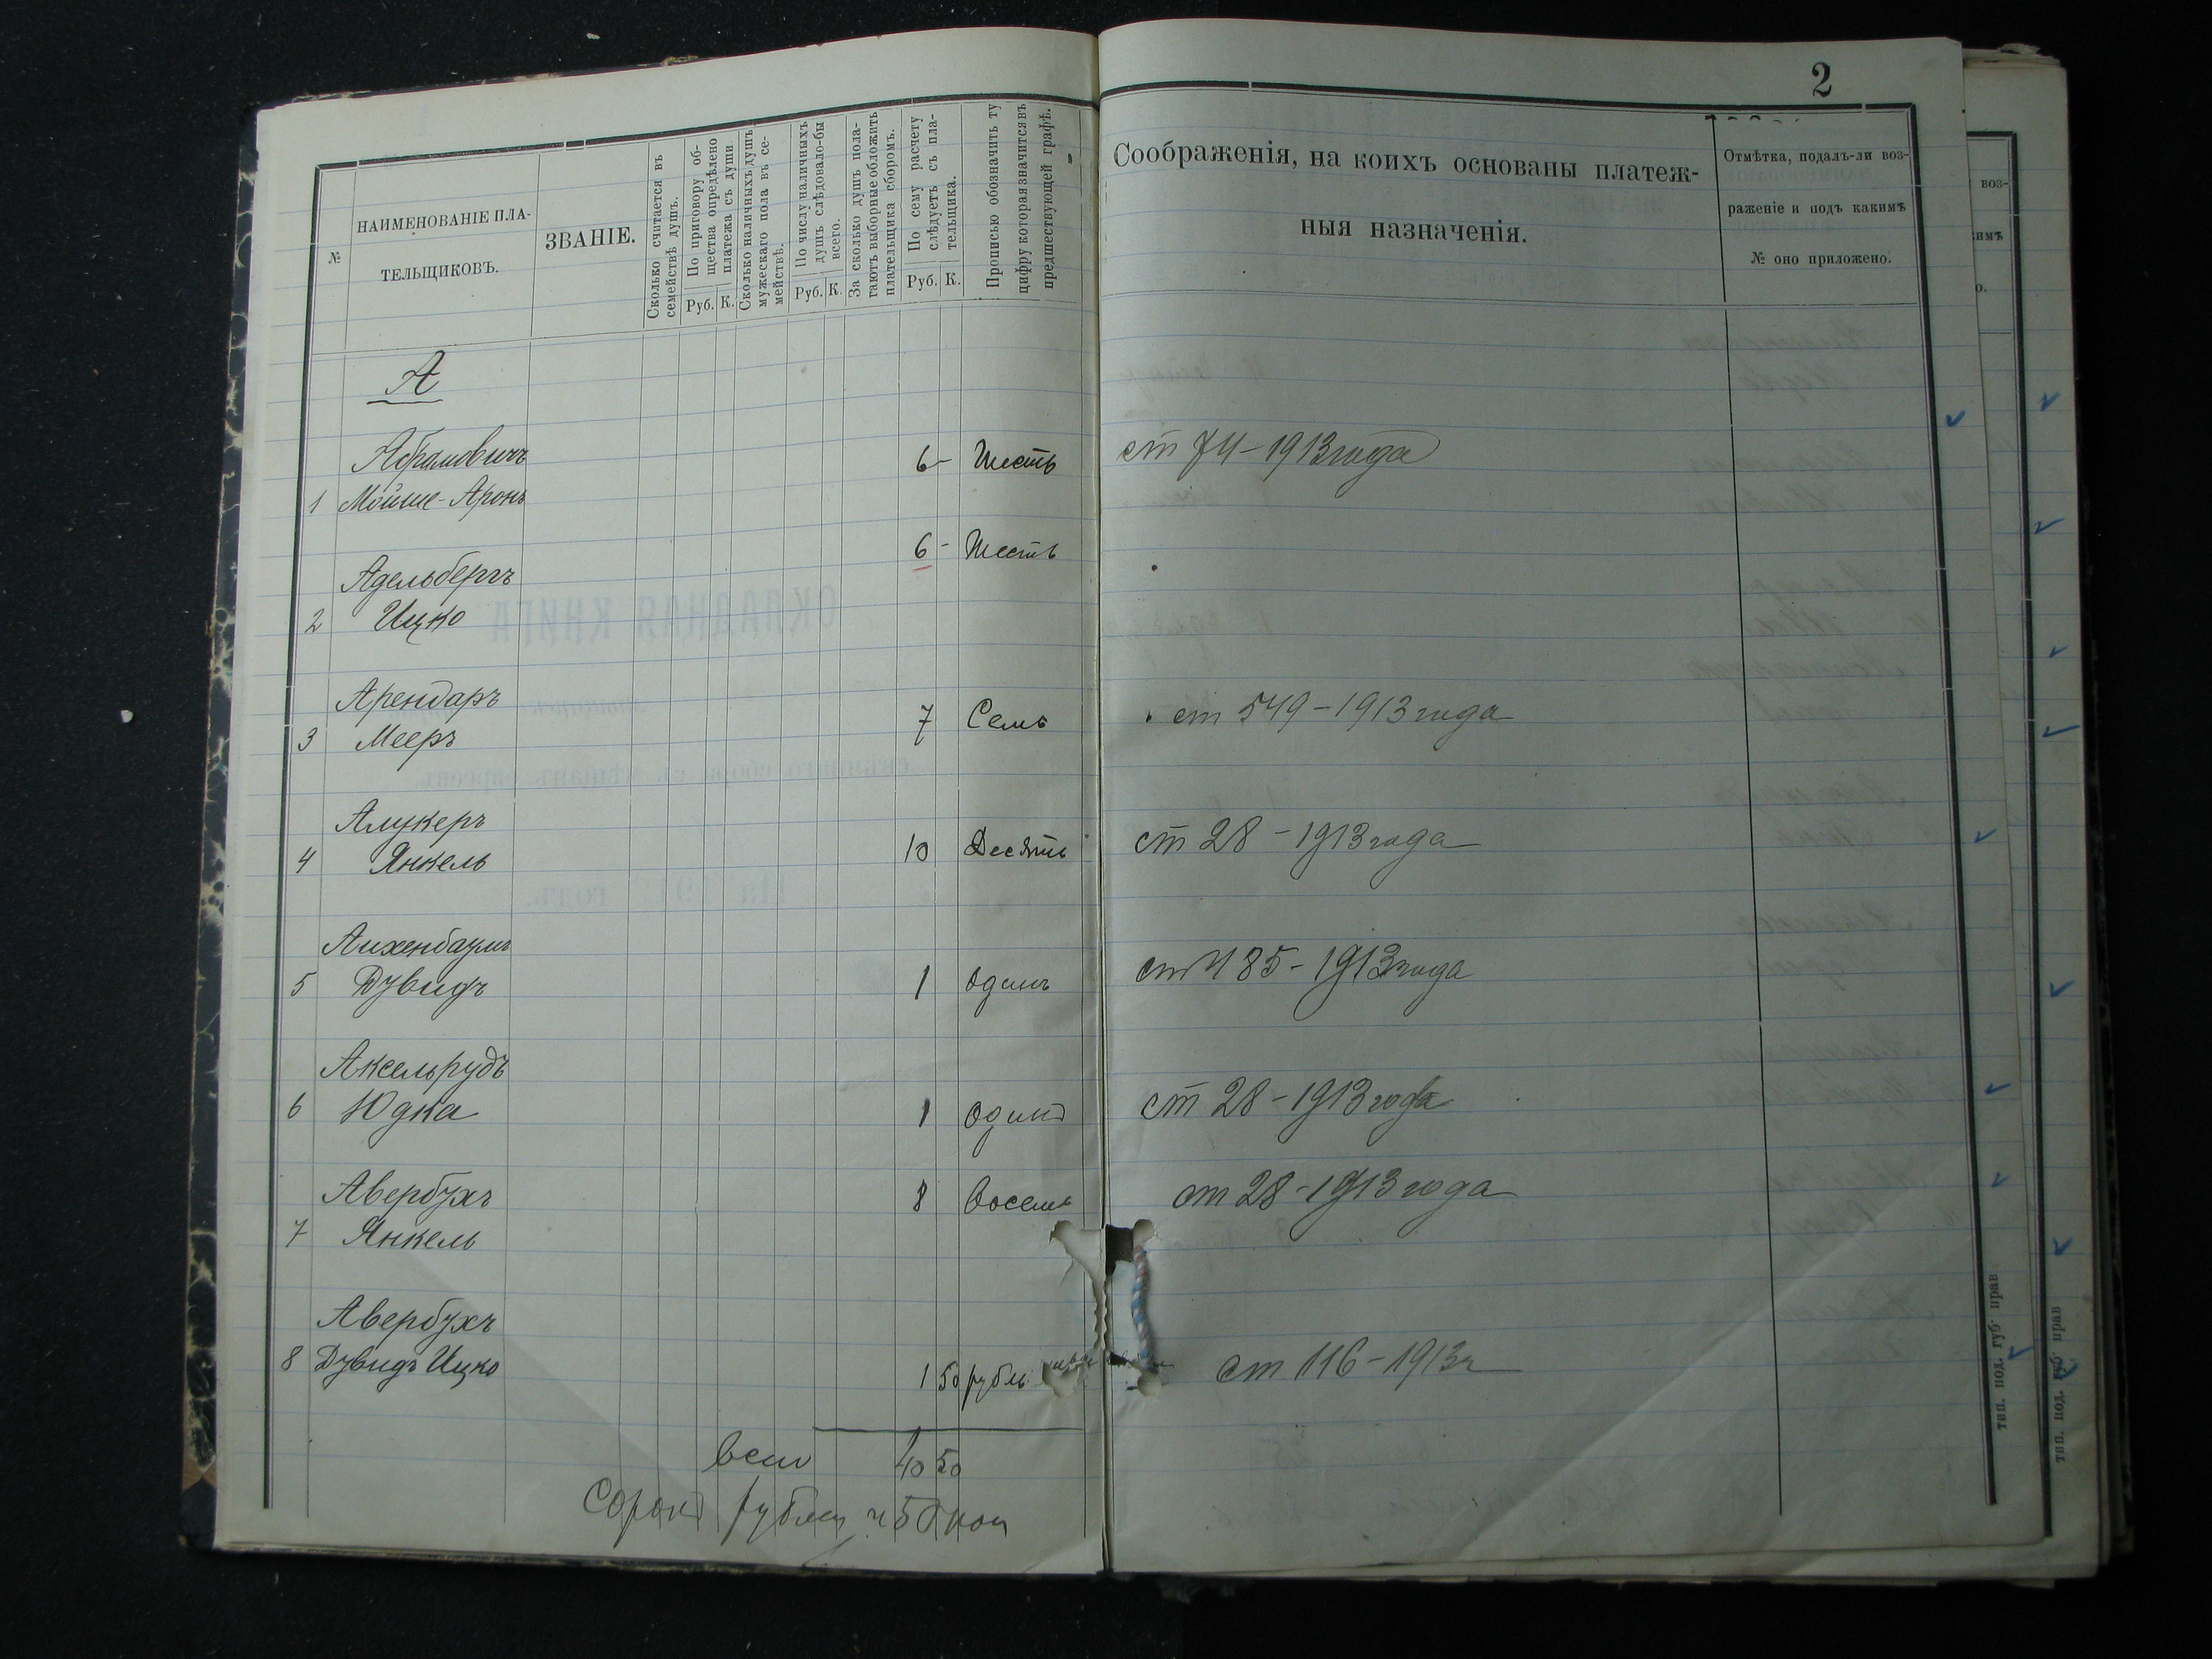 2
№
НАИМЕНОВАНІЕ ПЛА-
ТЕЛЬЩИКОВЪ.
ЗВАНІЕ.
Сколько считается въ
семействѣ душъ.
По приговору об-
щества опредѣлено
платежа съ души
Руб. К.
Сколько наличныхъ душъ
мужескаго пола въ се-
мействѣ.
По числу наличныхъ
душъ слѣдовало-бы
всего.
Руб. К.
За сколько душъ пола-
гаютъ выборные обложить
плательщика сборомъ.
По сему расчету
слѣдуетъ съ пла-
тельщика.
Руб. К.
Прописью обозначить ту
цифру которая значится въ
предшествующей графѣ.
Соображенія, на коихъ основаны платеж-
ныя назначенія.
Отмѣтка, подалъ-ли воз-
раженіе и подъ какимъ
№ оно приложено.
А
Абрамовичъ 6- Шесть ст 74-1913 года
1 Мойше-Аронъ
6- Шесть
Адельбергъ
2 Ицко
Арендаръ
7 Семь ст 549-1913 года
3 Мееръ
Алукеръ
10 Десять ст 28-1913 года
4 Янкель
Аихенбаумъ
5 Дувидъ 1 Одинъ ст 485-1913 года
Аксельрудъ
6 Юдка 1 Одинъ ст 28-1913 года
Авербухъ 8 Восемь ст 28-1913 года
7 Янкель
Авербухъ
8 Дувидъ Ицко 1 50 рубль ст 116-1913 г
всего 40 50
Сорокъ рублей и 50 коп
тип. под. губ. прав
воз-
имъ
о.
тип. под. губ. прав